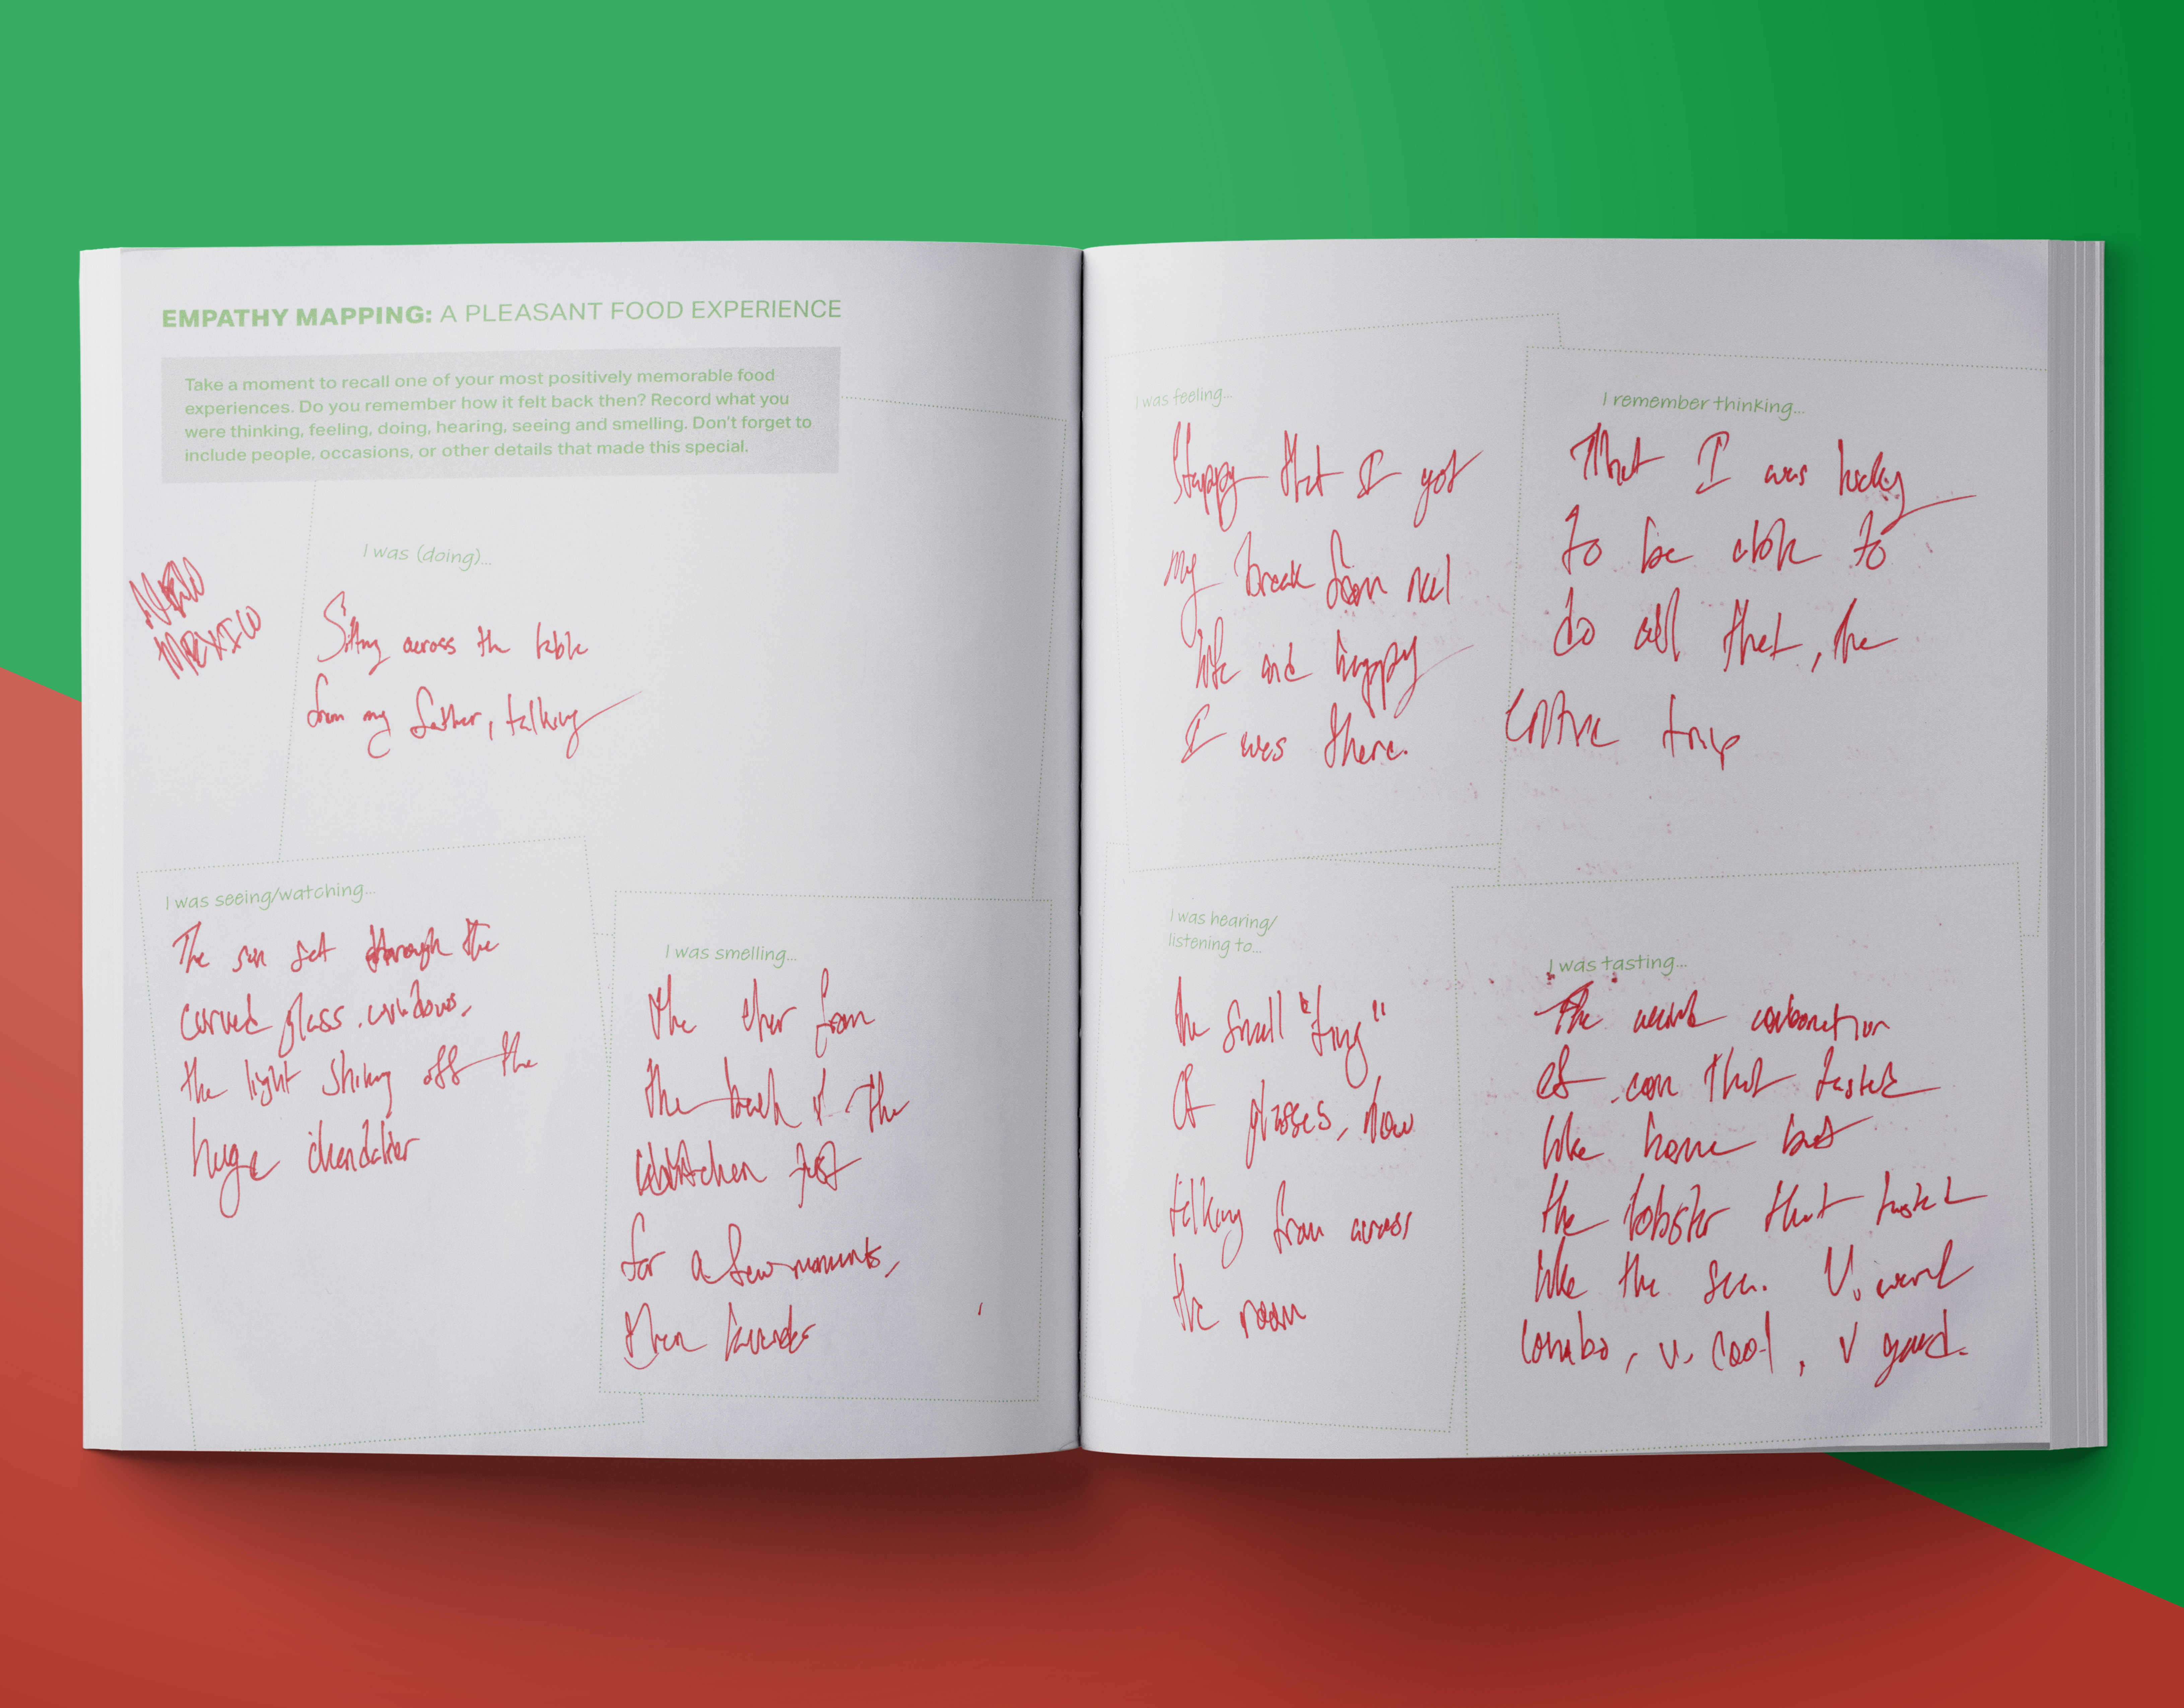 EMPATHY MAPPING: A PLEASANT FOOD EXPERIENCE
Take a moment to recall one of your most positively memorable food
experiences. Do you remember how it felt back then? Record what you
were thinking, feeling, doing, hearing, seeing and smelling. Don't forget to
include people, occasions, or other details that made this special.
MEXICO
I was (doing)...
Sitting across the table
from my father, talking
I was seeing/watching...
The sun set through the
curved glass windows,
the light shining off the
huge chandelier
I was smelling...
the from
the back of the
kitchen just
for a few moments,
then lavender
I was feeling...
Happy that I got
my break from real
life and happy
I was there.
I remember thinking...
That I was lucky
to be able to
do all that, the
entire trip
I was hearing/
listening to...
the small "ting"
of glasses, low
talking from across
the room
I was tasting...
The weird combination
of corn that tasted
like home but
the lobster that tasted
like the sea. V. weird
combo, v. cool, v good.